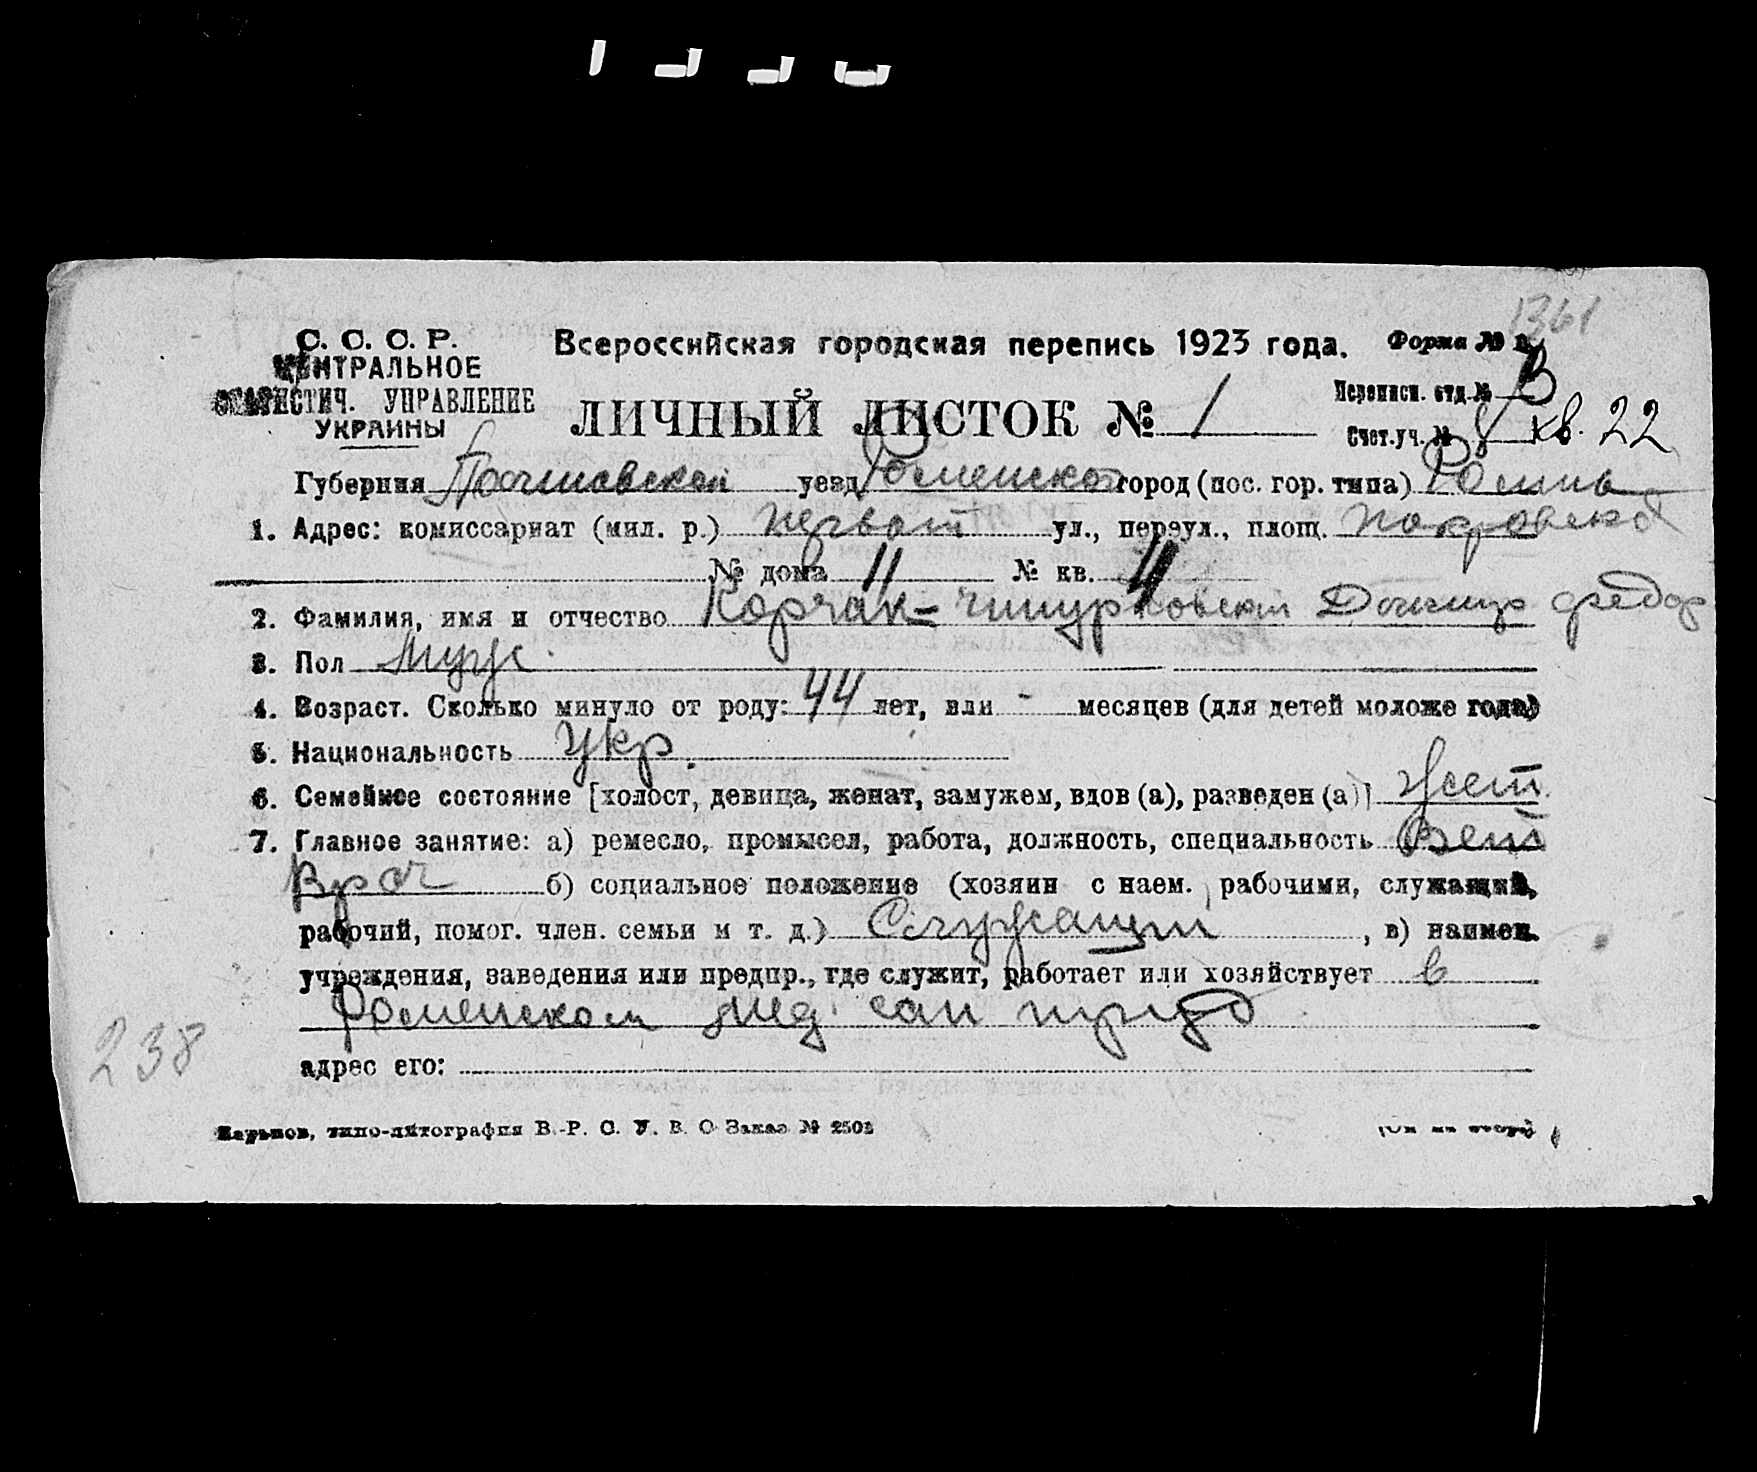 1361
С. С. С. Р.
ЦЕНТРАЛЬНОЕ
СТАТИСТИЧ. УПРАВЛЕНИЕ
УКРАИНЫ
Всероссийская городская перепись 1923 года.
Форма № В
ЛИЧНЫЙ ЛИСТОК № 1
Переписн. отд. № В
Счет.уч. № 8 кв. 22
Губерния Полтавской уезд Роменской город (пос. гор. типа) Ромны
1. Адрес: комиссариат (мил. р.) первой ул., переул., площ. Покровской
№ дома 11 № кв.
2. Фамилия, имя и отчество Корчак- Федор
3. Пол Муж.
4. Возраст. Сколько минуло от роду: 44 лет, или - месяцев (для детей моложе года)
5. Национальность Укр.
6. Семейное состояние [холост, девица, женат, замужем, вдов (а), разведен (а)] Жен.
7. Главное занятие: а) ремесло, промысел, работа, должность, специальность Вет
Врач б) социальное положение (хозяин с наем. рабочими, служащий,
рабочий, помог. член. семьи и т. д.) Служащий, в) наимен.
учреждения, заведения или предпр., где служит, работает или хозяйствует в
Роменском мед. сан
адрес его:
238
Харьков, типо-литография В.-Р. С. У. В. О Заказ № 2502